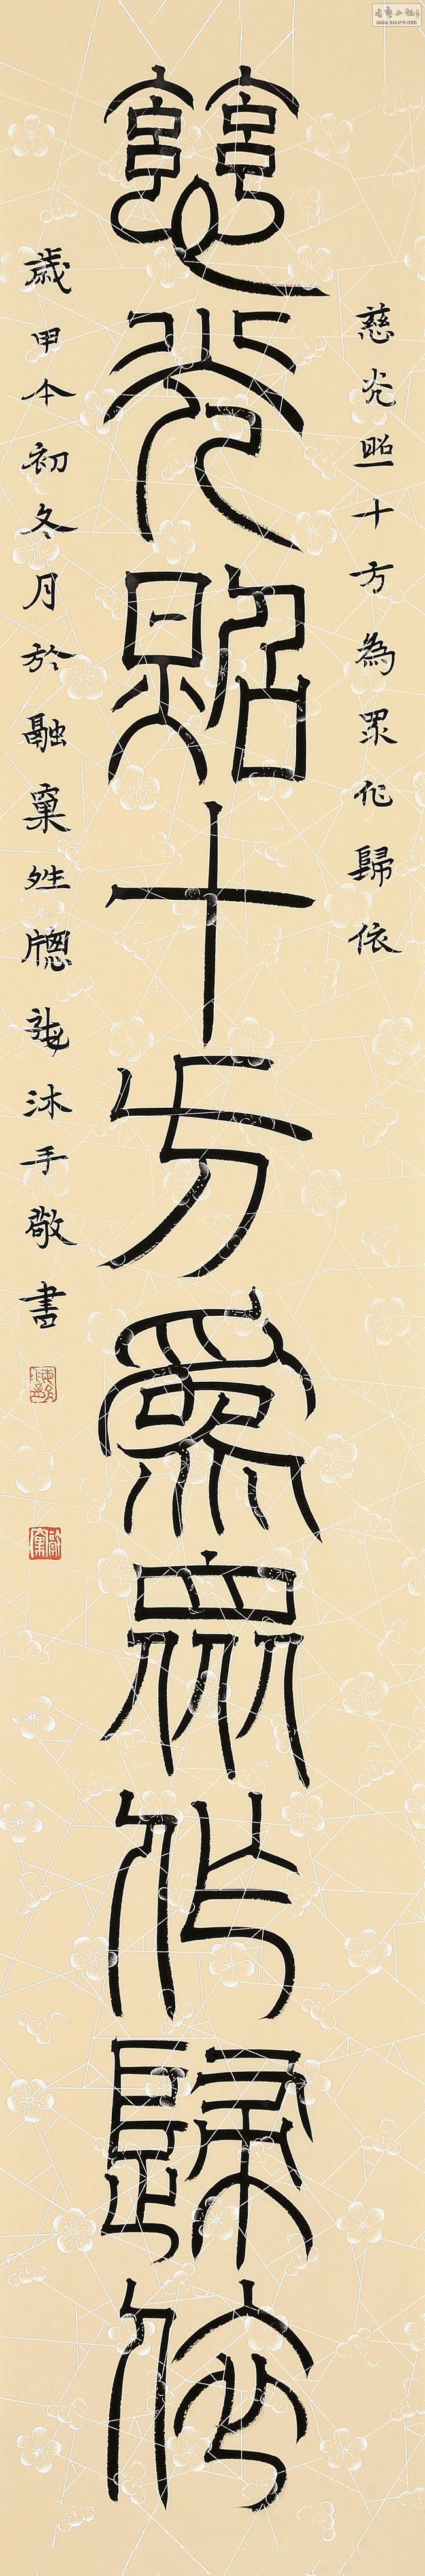 慈光照十方為眾作歸依
慈光照十方為眾作歸依
歲甲午初冬月於融
沐手敬書
WWW.SHUFA.ORG